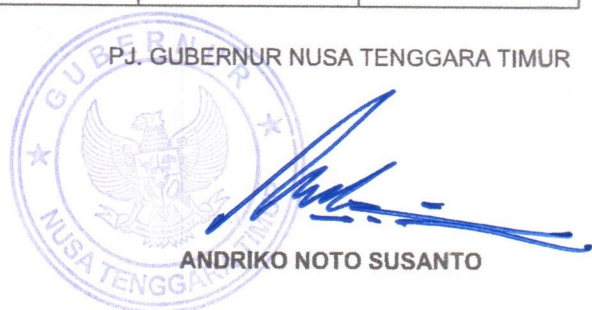 PJ. GUBERNUR NUSA TENGGARA TIMUR
GUBERNUR
NUSA TENGGARA TIMUR
ANDRIKO NOTO SUSANTO